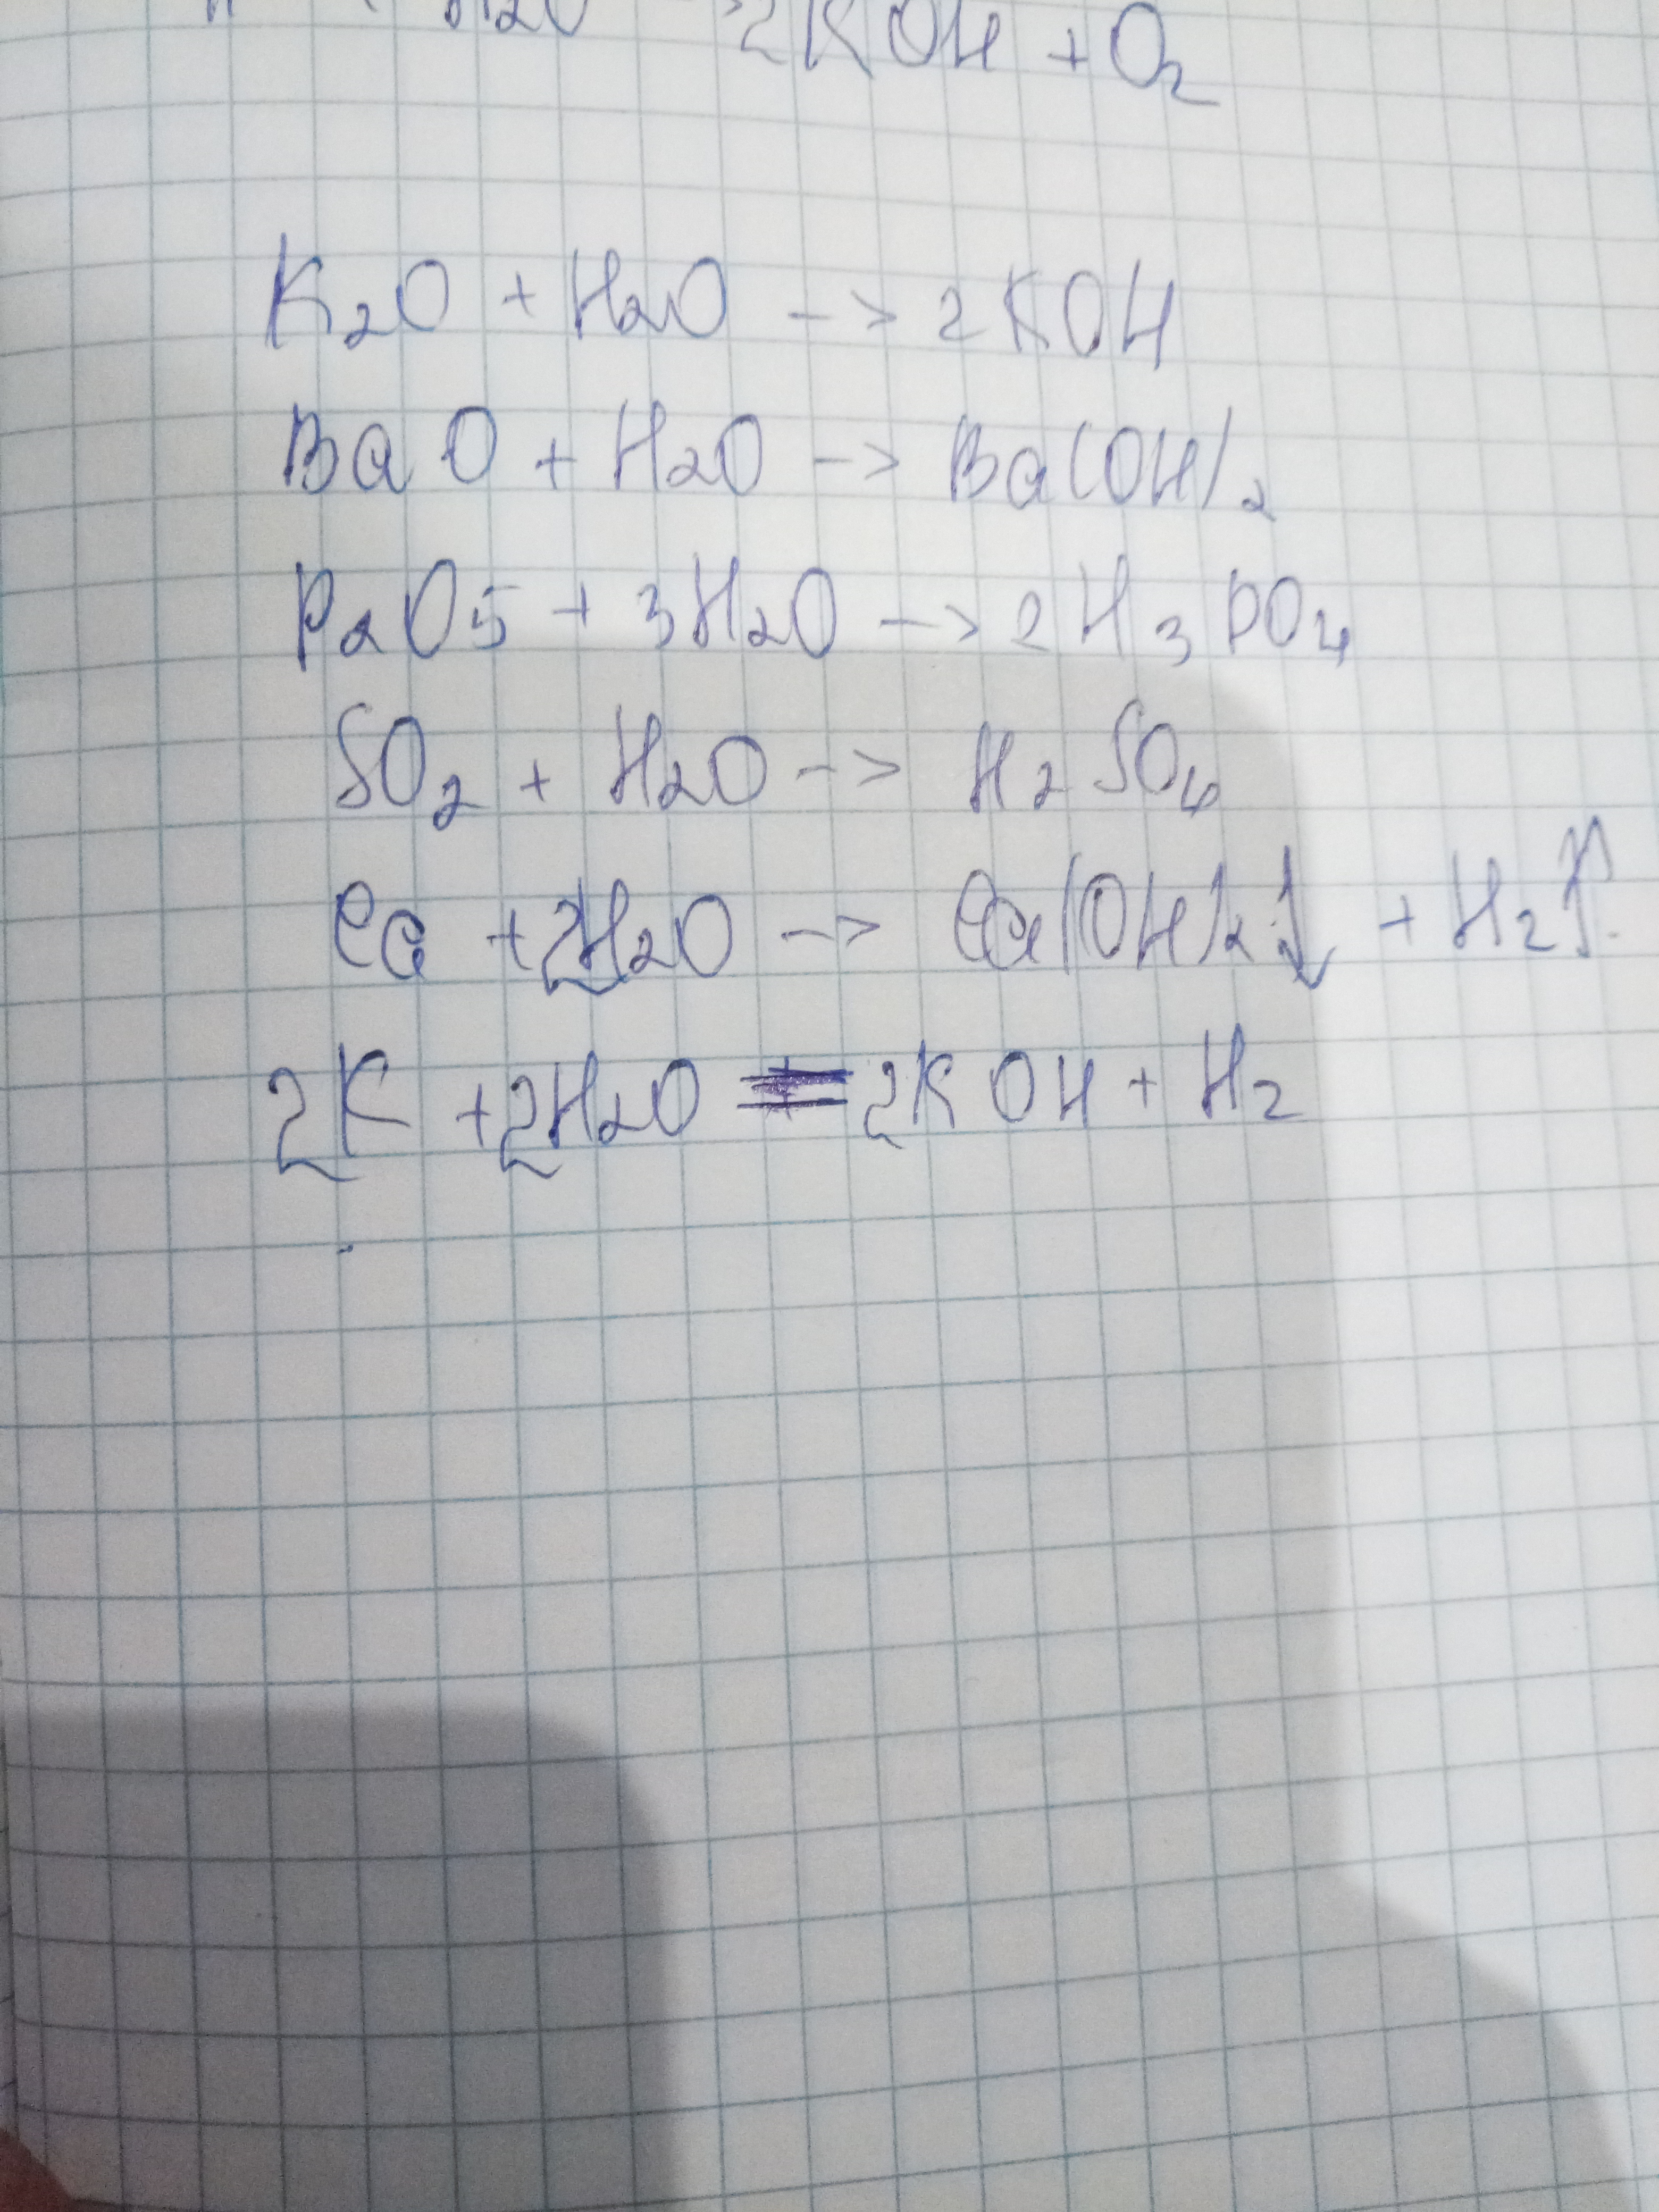 H2O -> 2KOH + O2
K2O + H2O -> 2KOH
BaO + H2O -> Ba(OH)2
P2O5 + 3H2O -> 2H3PO4
SO2 + H2O -> H2SO4
Ca + 2H2O -> Ca(OH)2↓ + H2↑
2K + 2H2O = 2KOH + H2